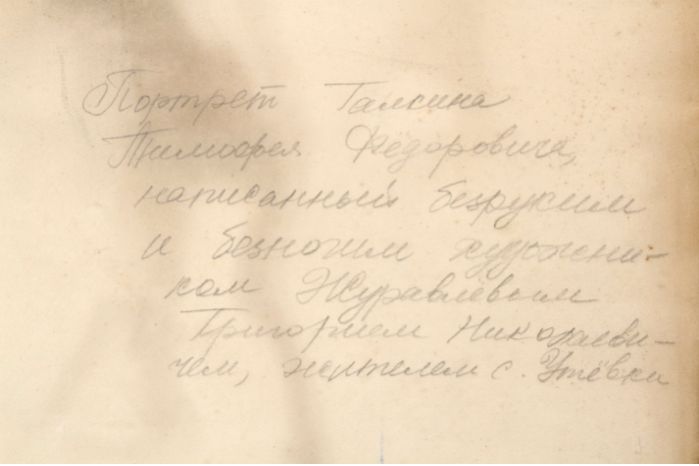 Портрет Галкина
Тимофея Федоровича,
написанный безруким
и безногим художни-
ком Журавлёвым
Григорием Николаеви-
чем, жителем с. Утёвки